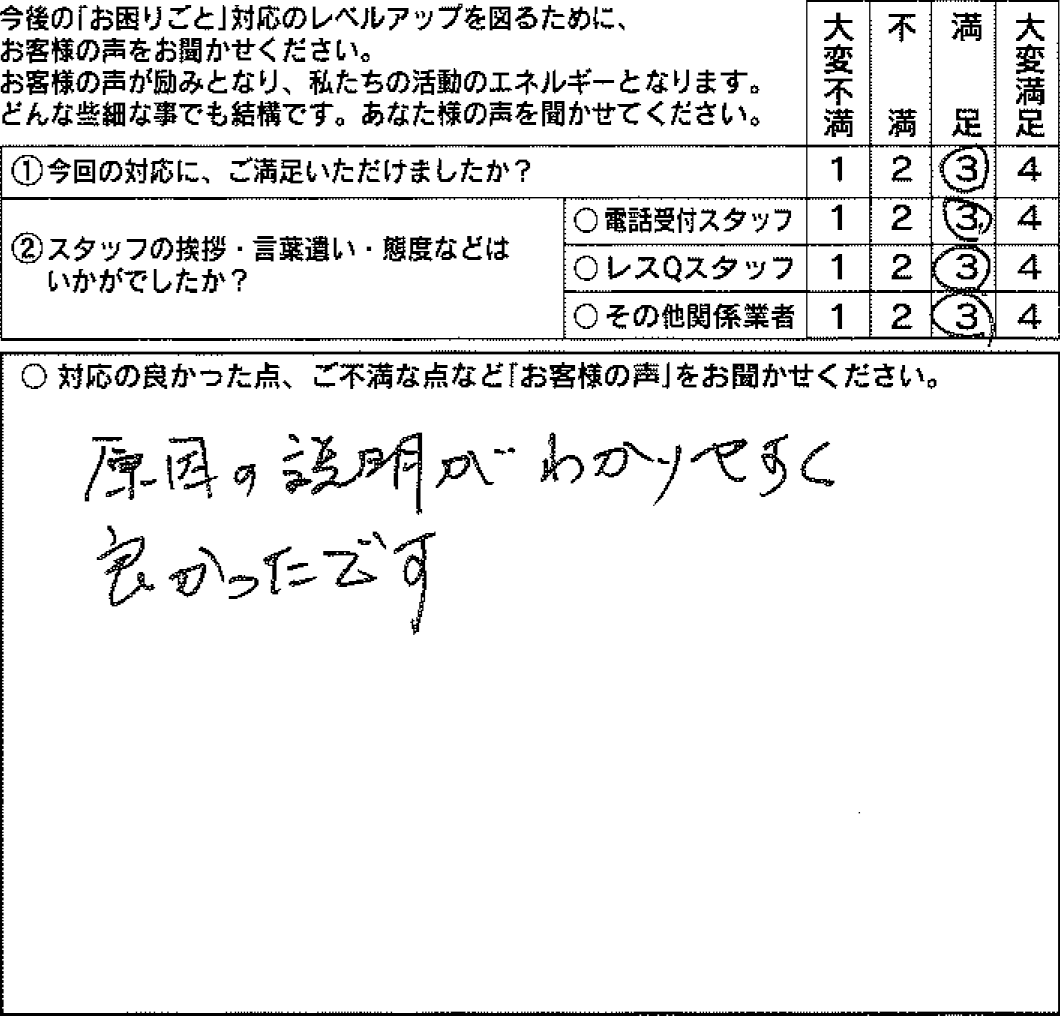 今後の「お困りごと」対応のレベルアップを図るために、
お客様の声をお聞かせください。
お客様の声が励みとなり、私たちの活動のエネルギーとなります。
どんな些細な事でも結構です。あなた様の声を聞かせてください。
大変不満 不満 満足 大変満足
①今回の対応に、ご満足いただけましたか？ 1 2 3 4
②スタッフの挨拶・言葉遣い・態度などは
いかがでしたか？
○電話受付スタッフ 1 2 3 4
○レスQスタッフ 1 2 3 4
○その他関係業者 1 2 3 4
○対応の良かった点、ご不満な点など「お客様の声」をお聞かせください。
原因の説明がわかりやすく
良かったです